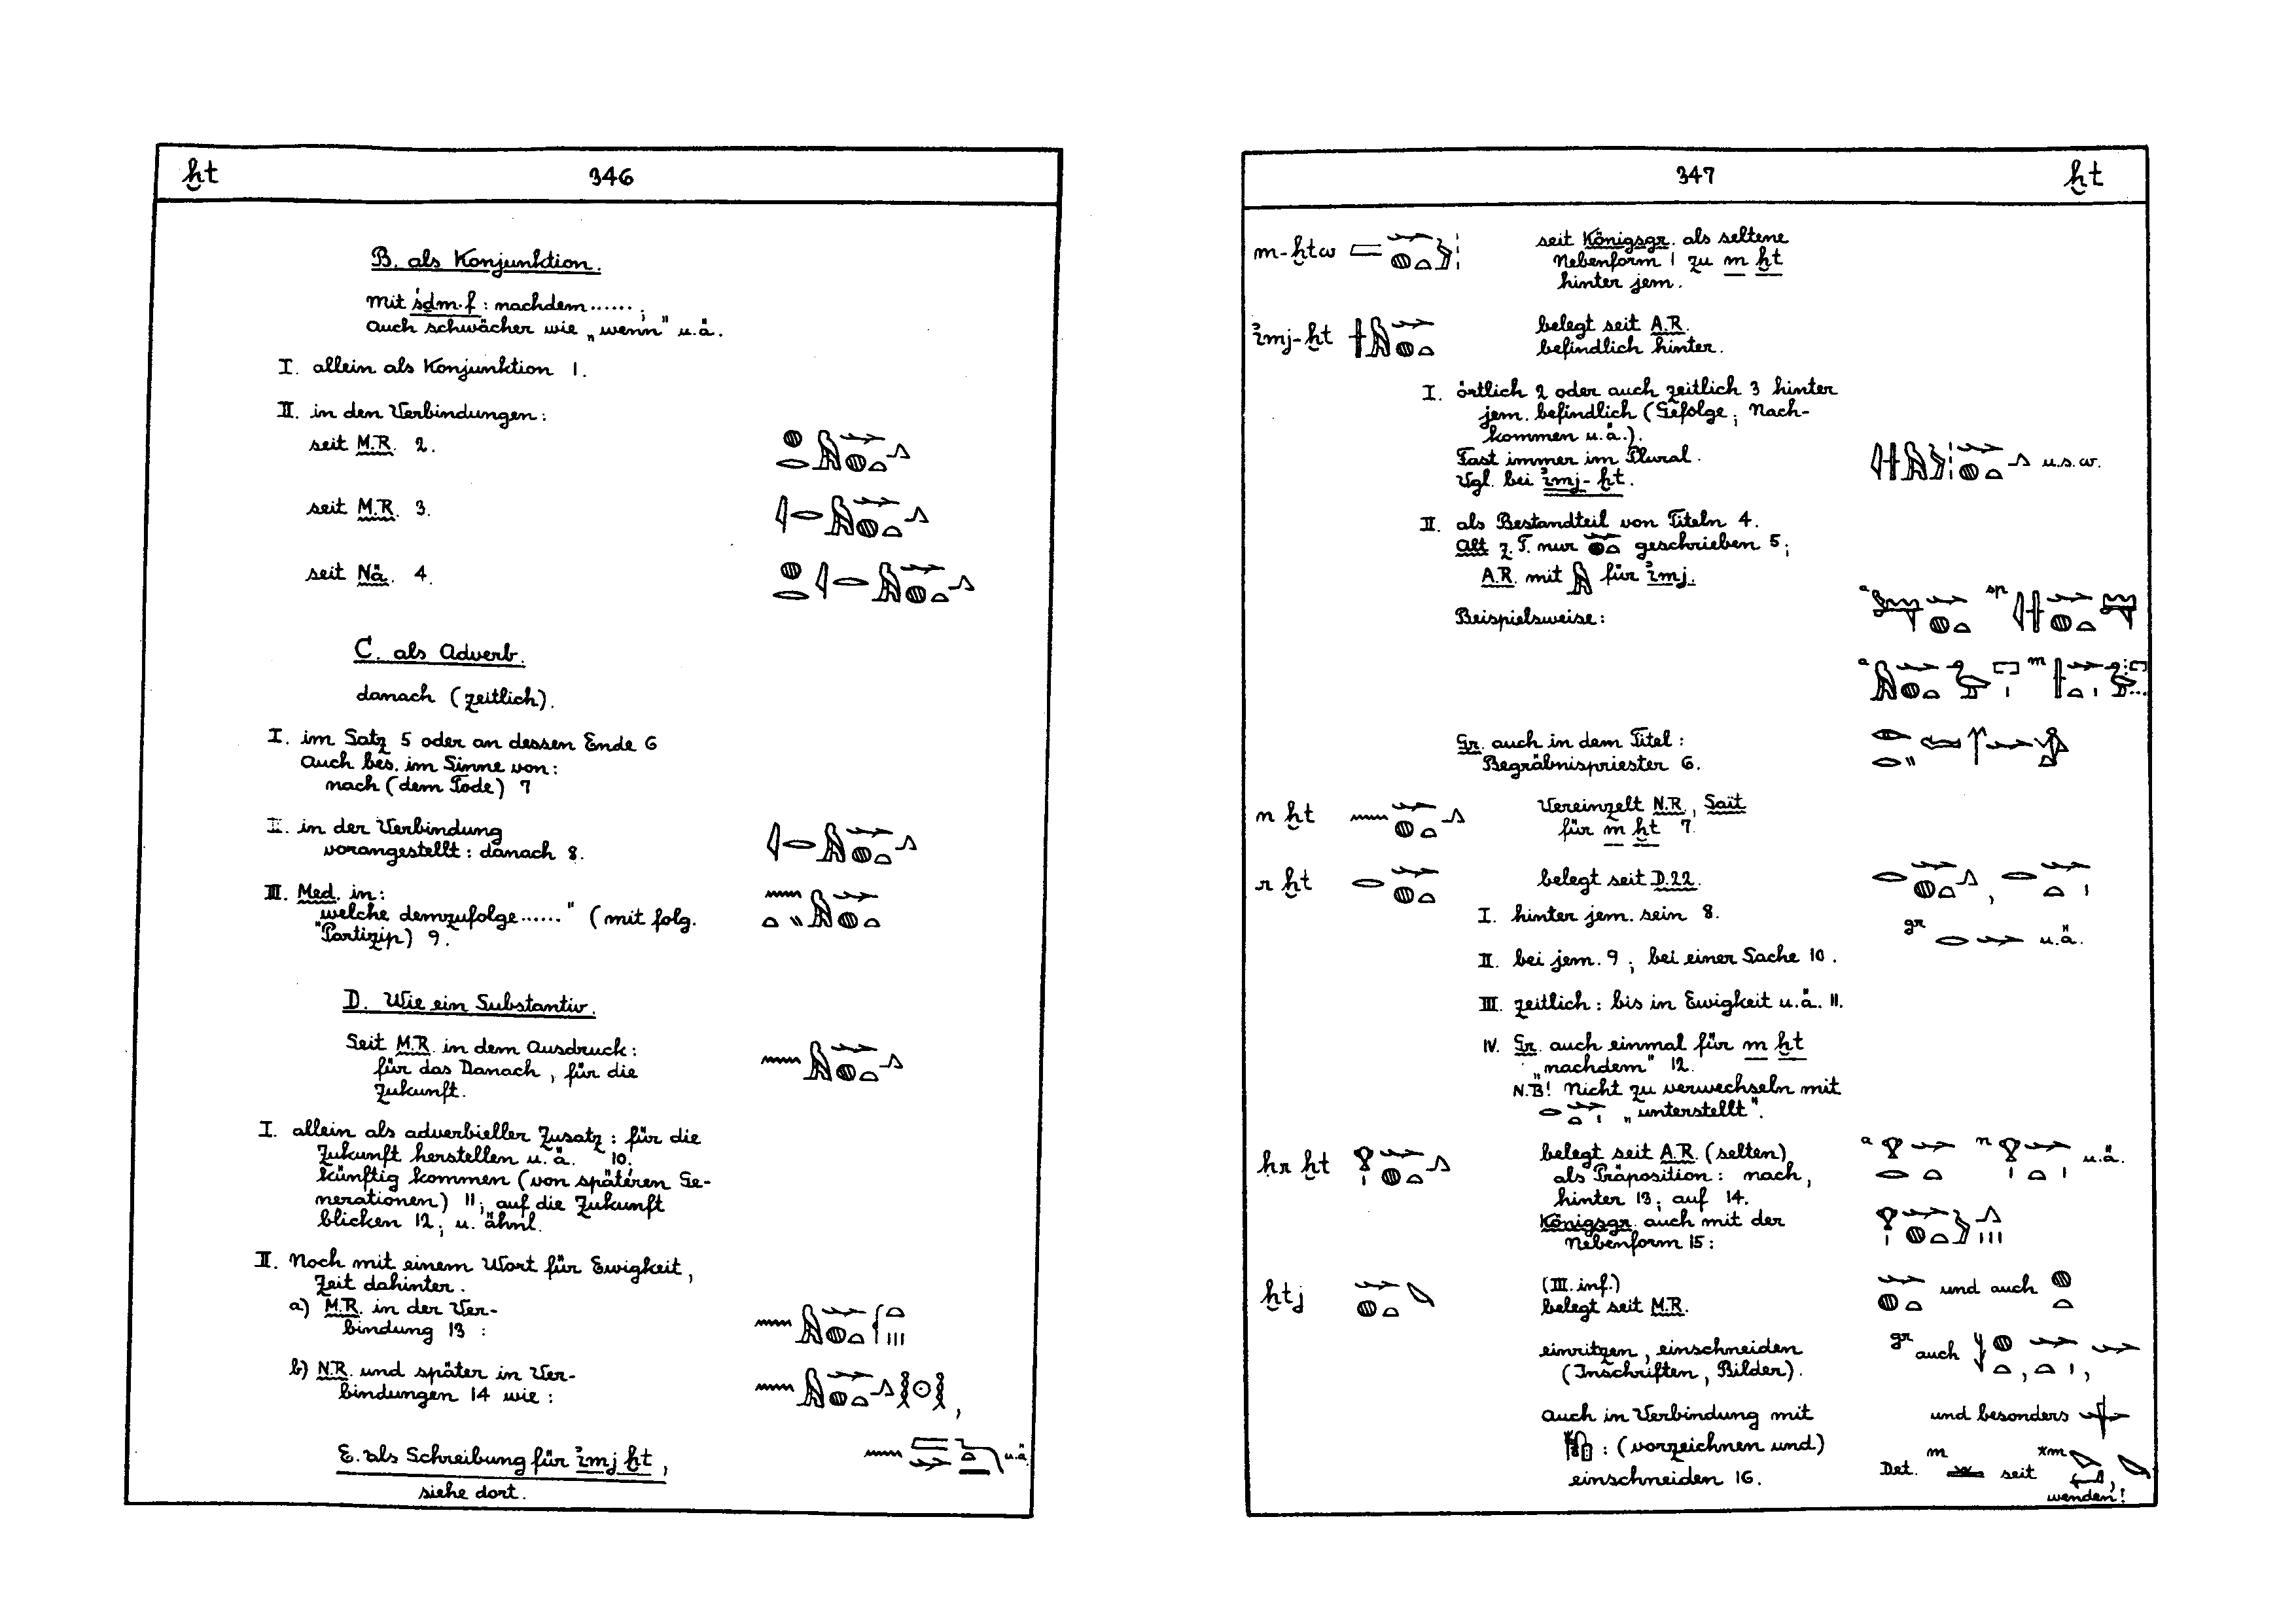 ḫt 346
B. als Konjunktion.
mit śḏm.f : nachdem ......;
auch schwächer wie „wenn" u.ä.
I. allein als Konjunktion 1.
II. in den Verbindungen:
seit M.R. 2.
seit M.R. 3.
seit Nä. 4.
C. als Adverb.
danach (zeitlich).
I. im Satz 5 oder an dessen Ende 6
auch bes. im Sinne von:
nach (dem Tode) 7
II. in der Verbindung
vorangestellt: danach 8.
III. Med. in:
„welche demzufolge ......" (mit folg.
Partizip) 9.
D. Wie ein Substantiv.
Seit M.R. in dem Ausdruck:
für das Danach, für die
Zukunft.
I. allein als adverbieller Zusatz: für die
Zukunft herstellen u.ä. 10.
künftig kommen (von späteren Ge-
nerationen) 11; auf die Zukunft
blicken 12; u. ähnl.
II. Noch mit einem Wort für Ewigkeit,
Zeit dahinter.
a) M.R. in der Ver-
bindung 13 :
b) N.R. und später in Ver-
bindungen 14 wie : ,
E. als Schreibung für ỉmj ḫt, u.ä.
siehe dort.
347 ḫt
m-ḫtw seit Königsgr. als seltene
Nebenform 1 zu m ḫt
hinter jem.
ỉmj-ḫt belegt seit A.R.
befindlich hinter.
I. örtlich 2 oder auch zeitlich 3 hinter
jem. befindlich (Gefolge; Nach-
kommen u.ä.).
Fast immer im Plural. u.s.w.
Vgl. bei ỉmj-ḫt.
II. als Bestandteil von Titeln 4.
Alt z.T. nur geschrieben 5;
A.R. mit für ỉmj.
Beispielsweise: a sp
a m
Gr. auch in dem Titel:
Begräbnispriester 6.
n ḫt Vereinzelt N.R., Sait
für m ḫt 7.
r ḫt belegt seit D.22. ,
I. hinter jem. sein 8.
gr u.ä.
II. bei jem. 9; bei einer Sache 10.
III. zeitlich: bis in Ewigkeit u.ä. 11.
IV. Gr. auch einmal für m ḫt
„nachdem" 12.
N.B! Nicht zu verwechseln mit
„unterstellt".
ḥr ḫt belegt seit A.R. (selten) a n u.ä.
als Präposition: nach,
hinter 13; auf 14.
Königsgr. auch mit der
Nebenform 15:
ḫtj (III. inf.) und auch
belegt seit M.R.
einritzen, einschneiden gr auch , ,
(Inschriften, Bilder).
auch in Verbindung mit und besonders
: (vorzeichnen und)
einschneiden 16. Det. m seit *m ,
wenden!